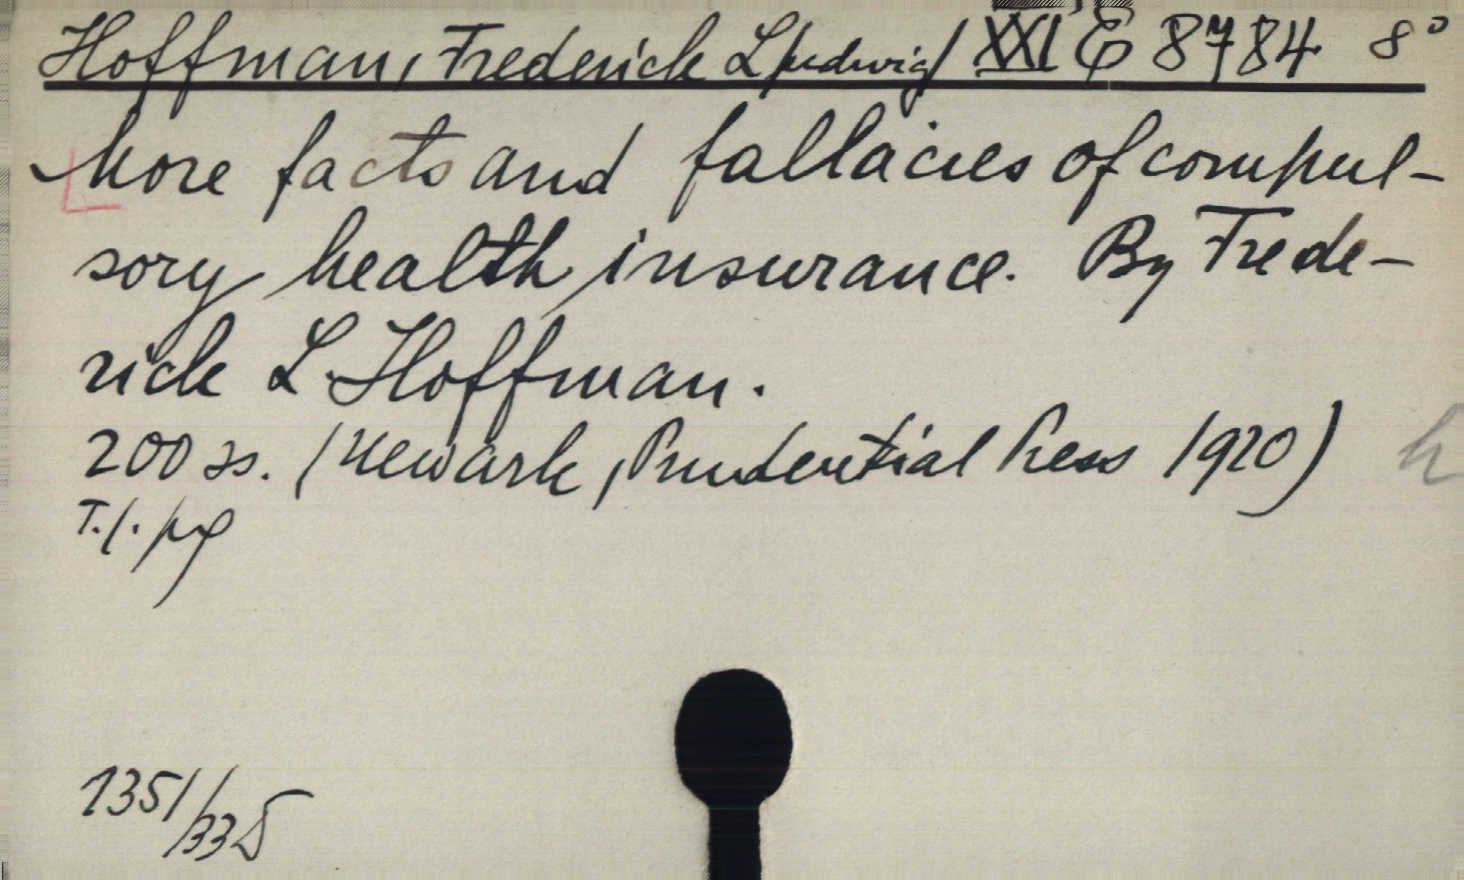 Hoffman, Frederick L/udwig/ XXI E 8784 8°
More facts and fallacies of compul-
sory health insurance. By Frede-
rick L. Hoffman.
200 ss. (Newark, Prudential Press 1920)
h
T./.
1351/33